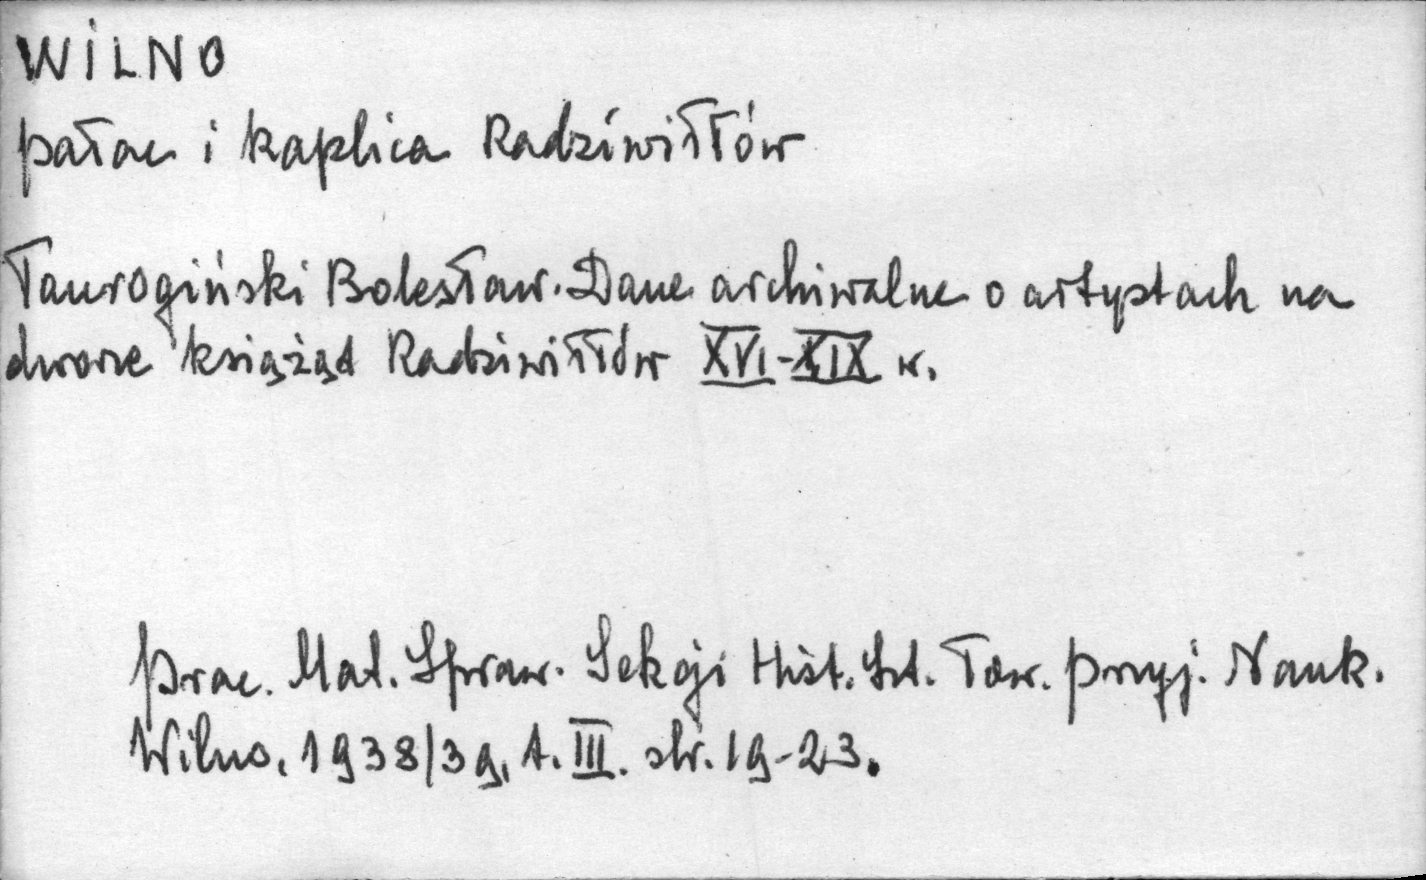 WILNO
pałac i kaplica Radziwiłłów
Taurogiński Bolesław. Dane archiwalne o artystach na
dworze książąt Radziwiłłów XVI-XIX w.
Prac. Mat. Spraw. Sekcji Hist. Szt. Tow. Przyj. Nauk.
Wilno, 1938/39, t. III. str. 19-23.